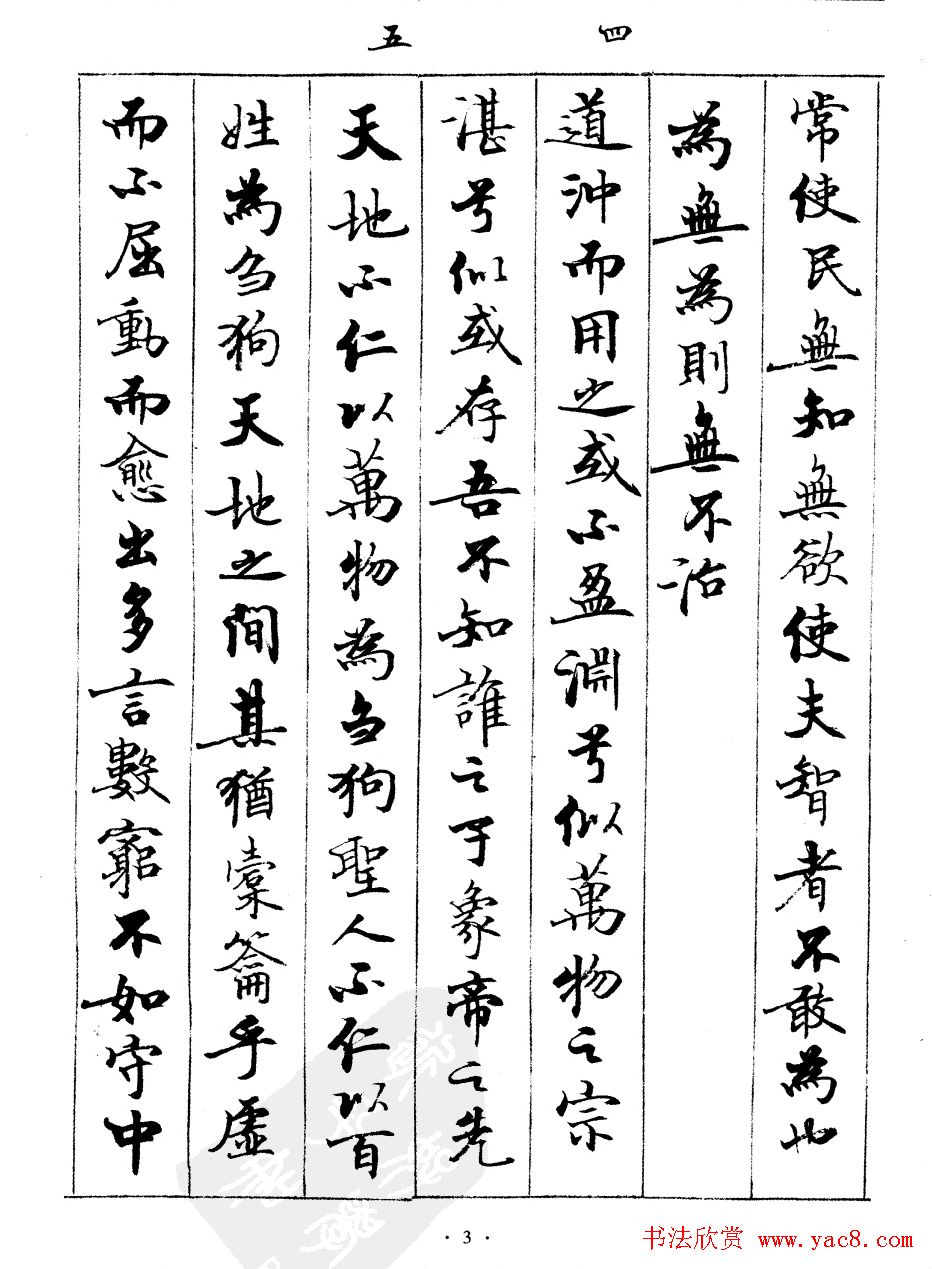 常使民無知無欲使夫智者不敢為也
為無為則無不治
四
道沖而用之或不盈淵兮似萬物之宗
湛兮似或存吾不知誰之子象帝之先
五
天地不仁以萬物為芻狗聖人不仁以百
姓為芻狗天地之間其猶橐籥乎虛
而不屈動而愈出多言數窮不如守中
· 3 ·
书法欣赏 www.yac8.com